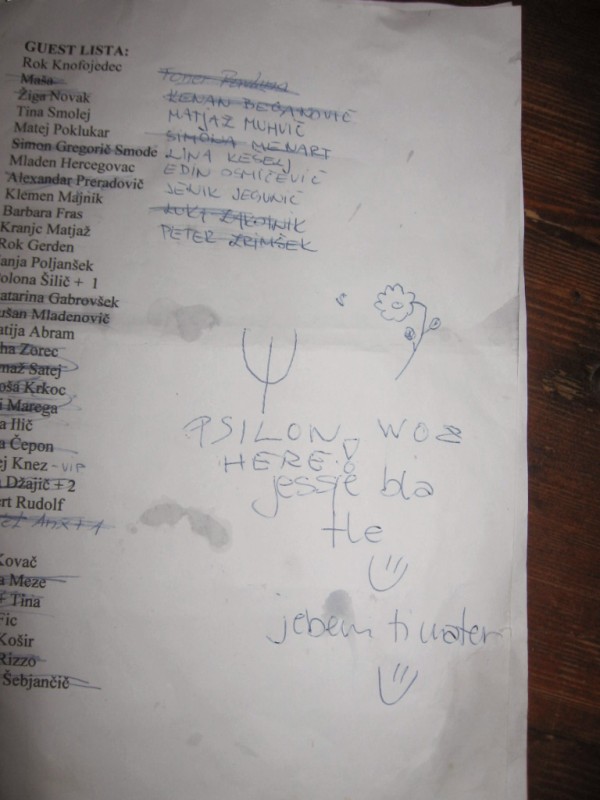 GUEST LISTA:
Rok Knofojedec
Maša
Žiga Novak
Tina Smolej
Matej Poklukar
Simon Gregorič Smode
Mladen Hercegovac
Alexandar Preradovič
Klemen Majnik
Barbara Fras
Kranjc Matjaž
Rok Gerden
anja Poljanšek
olona Šilič + 1
atarina Gabrovšek
ušan Mladenovič
atija Abram
ha Zorec
maž Satej
oša Krkoc
i Marega
a Ilič
a Čepon
ej Knez - VIP
Džajič + 2
ert Rudolf
Kovač
a Meze
+ Tina
Fic
Košir
Rizzo
Šebjančič
KENAN BEGANOVIČ
MATJAŽ MUHVIČ
SIMONA MENART
LINA KESELJ
EDIN OSMIČEVIČ
JERNIK JEGUNIČ
LUKA ZAKOTNIK
PETER ZRIMŠEK
PSILON WOZ
HERE!
jessie bla
tle
jebem ti mater